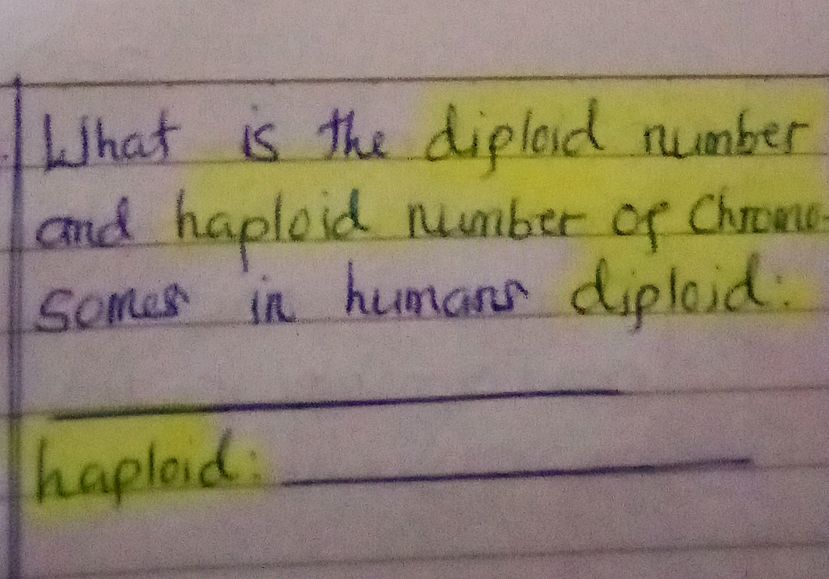 What is the diploid number
and haploid number of Chromo-
somes in humans diploid:
haploid: